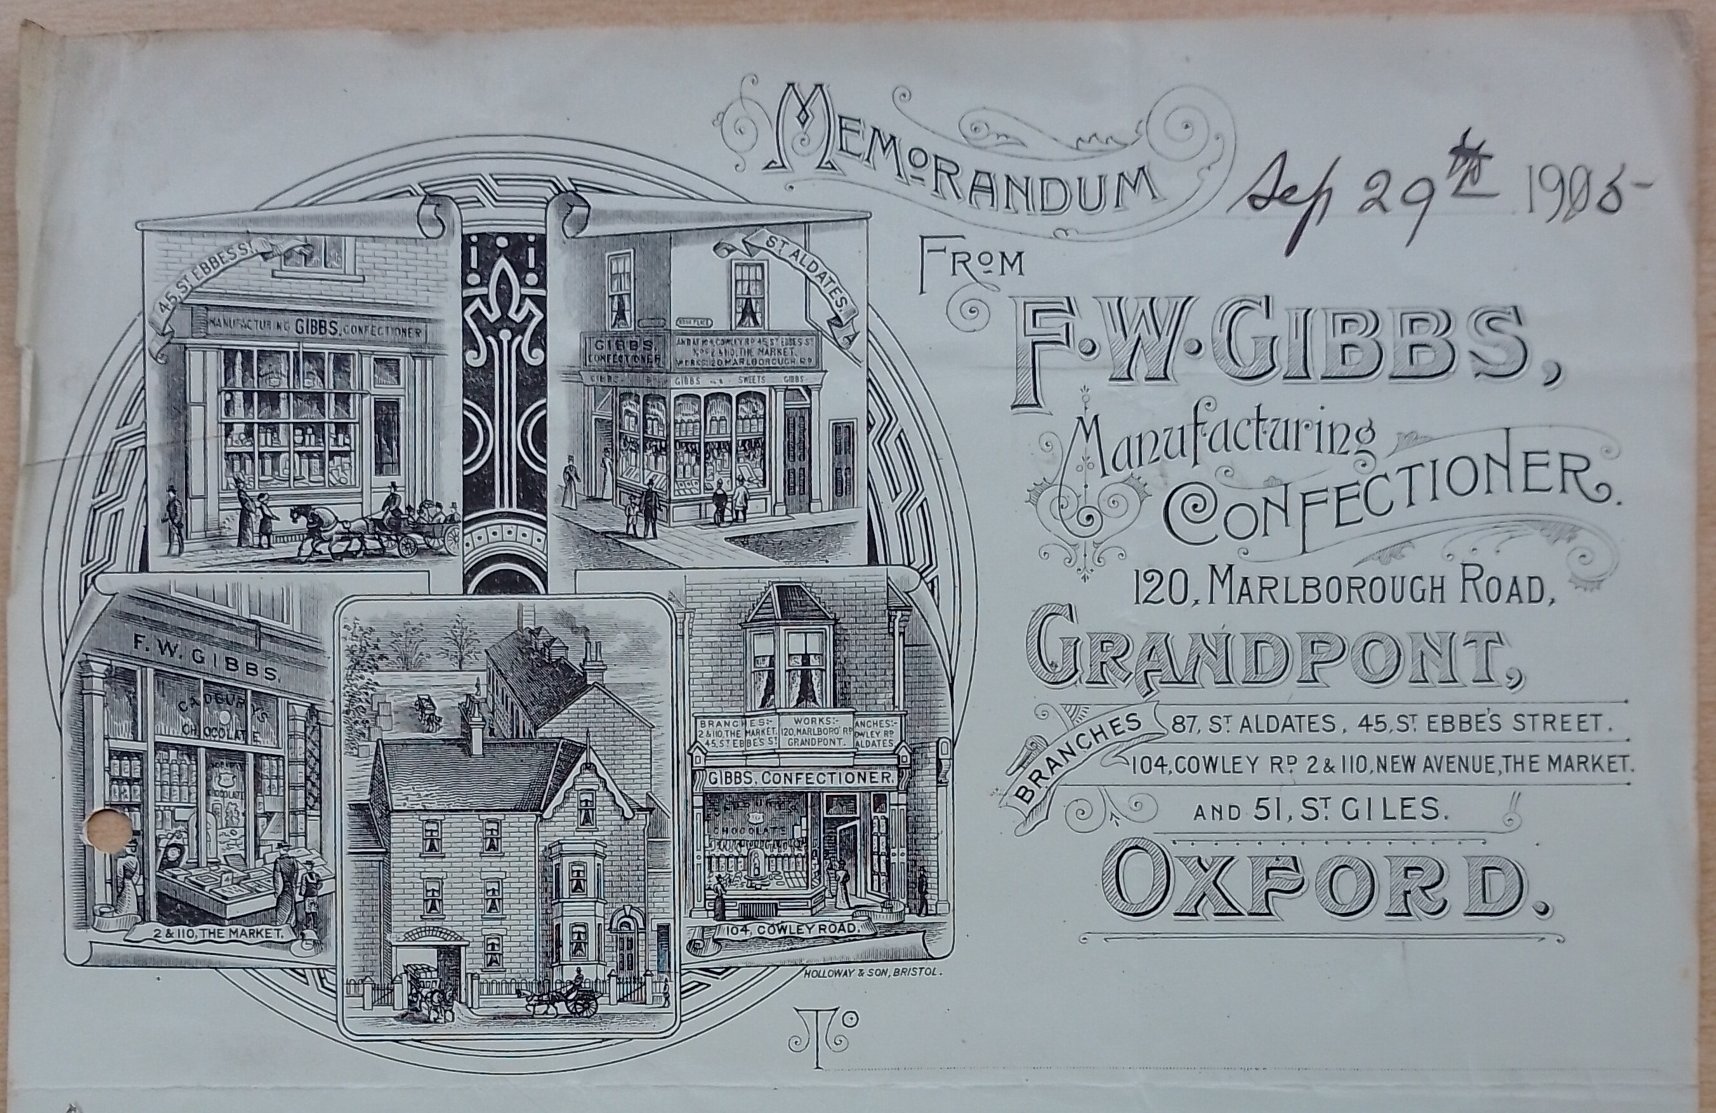 MEMORANDUM
Sep 29th 1905
FROM
F. W. GIBBS,
Manufacturing
CONFECTIONER.
120, MARLBOROUGH ROAD,
GRANDPONT,
BRANCHES
87, ST ALDATES, 45, ST EBBE'S STREET.
104, COWLEY RD 2 & 110, NEW AVENUE, THE MARKET.
AND 51, ST GILES.
OXFORD.
To
45, ST EBBES ST
MANUFACTURING GIBBS, CONFECTIONER
ST ALDATES
GIBBS,
CONFECTIONER
COWLEY RD 45, ST EBBES ST
THE MARKET.
MARLBOROUGH RD
GIBBS SWEETS GIBBS
F. W. GIBBS.
CADBURY'S
CHOCOLATE
CHOCOLATE
2 & 110, THE MARKET.
BRANCHES:-
2 & 110, THE MARKET.
45, ST EBBE'S ST
WORKS:-
120, MARLBORO' RD
GRANDPONT.
ANCHES:-
OWLEY RD
ALDATES
GIBBS, CONFECTIONER.
CHOCOLATE
104, COWLEY ROAD.
HOLLOWAY & SON, BRISTOL.